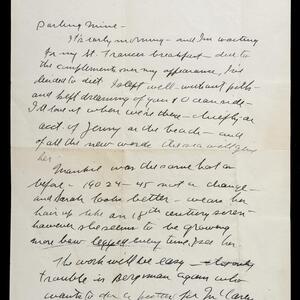 Darling mine -
It's early morning - and I'm waiting
for my St. Francis breakfast - due to
the compliments over my appearance, I've
decided to diet. I slept well - without pills -
and kept dreaming of you & Oceanside -
I'll love it when we're there - chiefly on
acct of Jenny on the beach - and
of all the new words the sea will give
her.
was the same hot as
before - 1902 4-45 not a change -
and Sarah looks better - wears her
hair up like an 18th century siren -
however she seems to be growing
more bow legged every time I see her
The work will be easy -
trouble is Bergman again who
wants to do a picture for McCarey